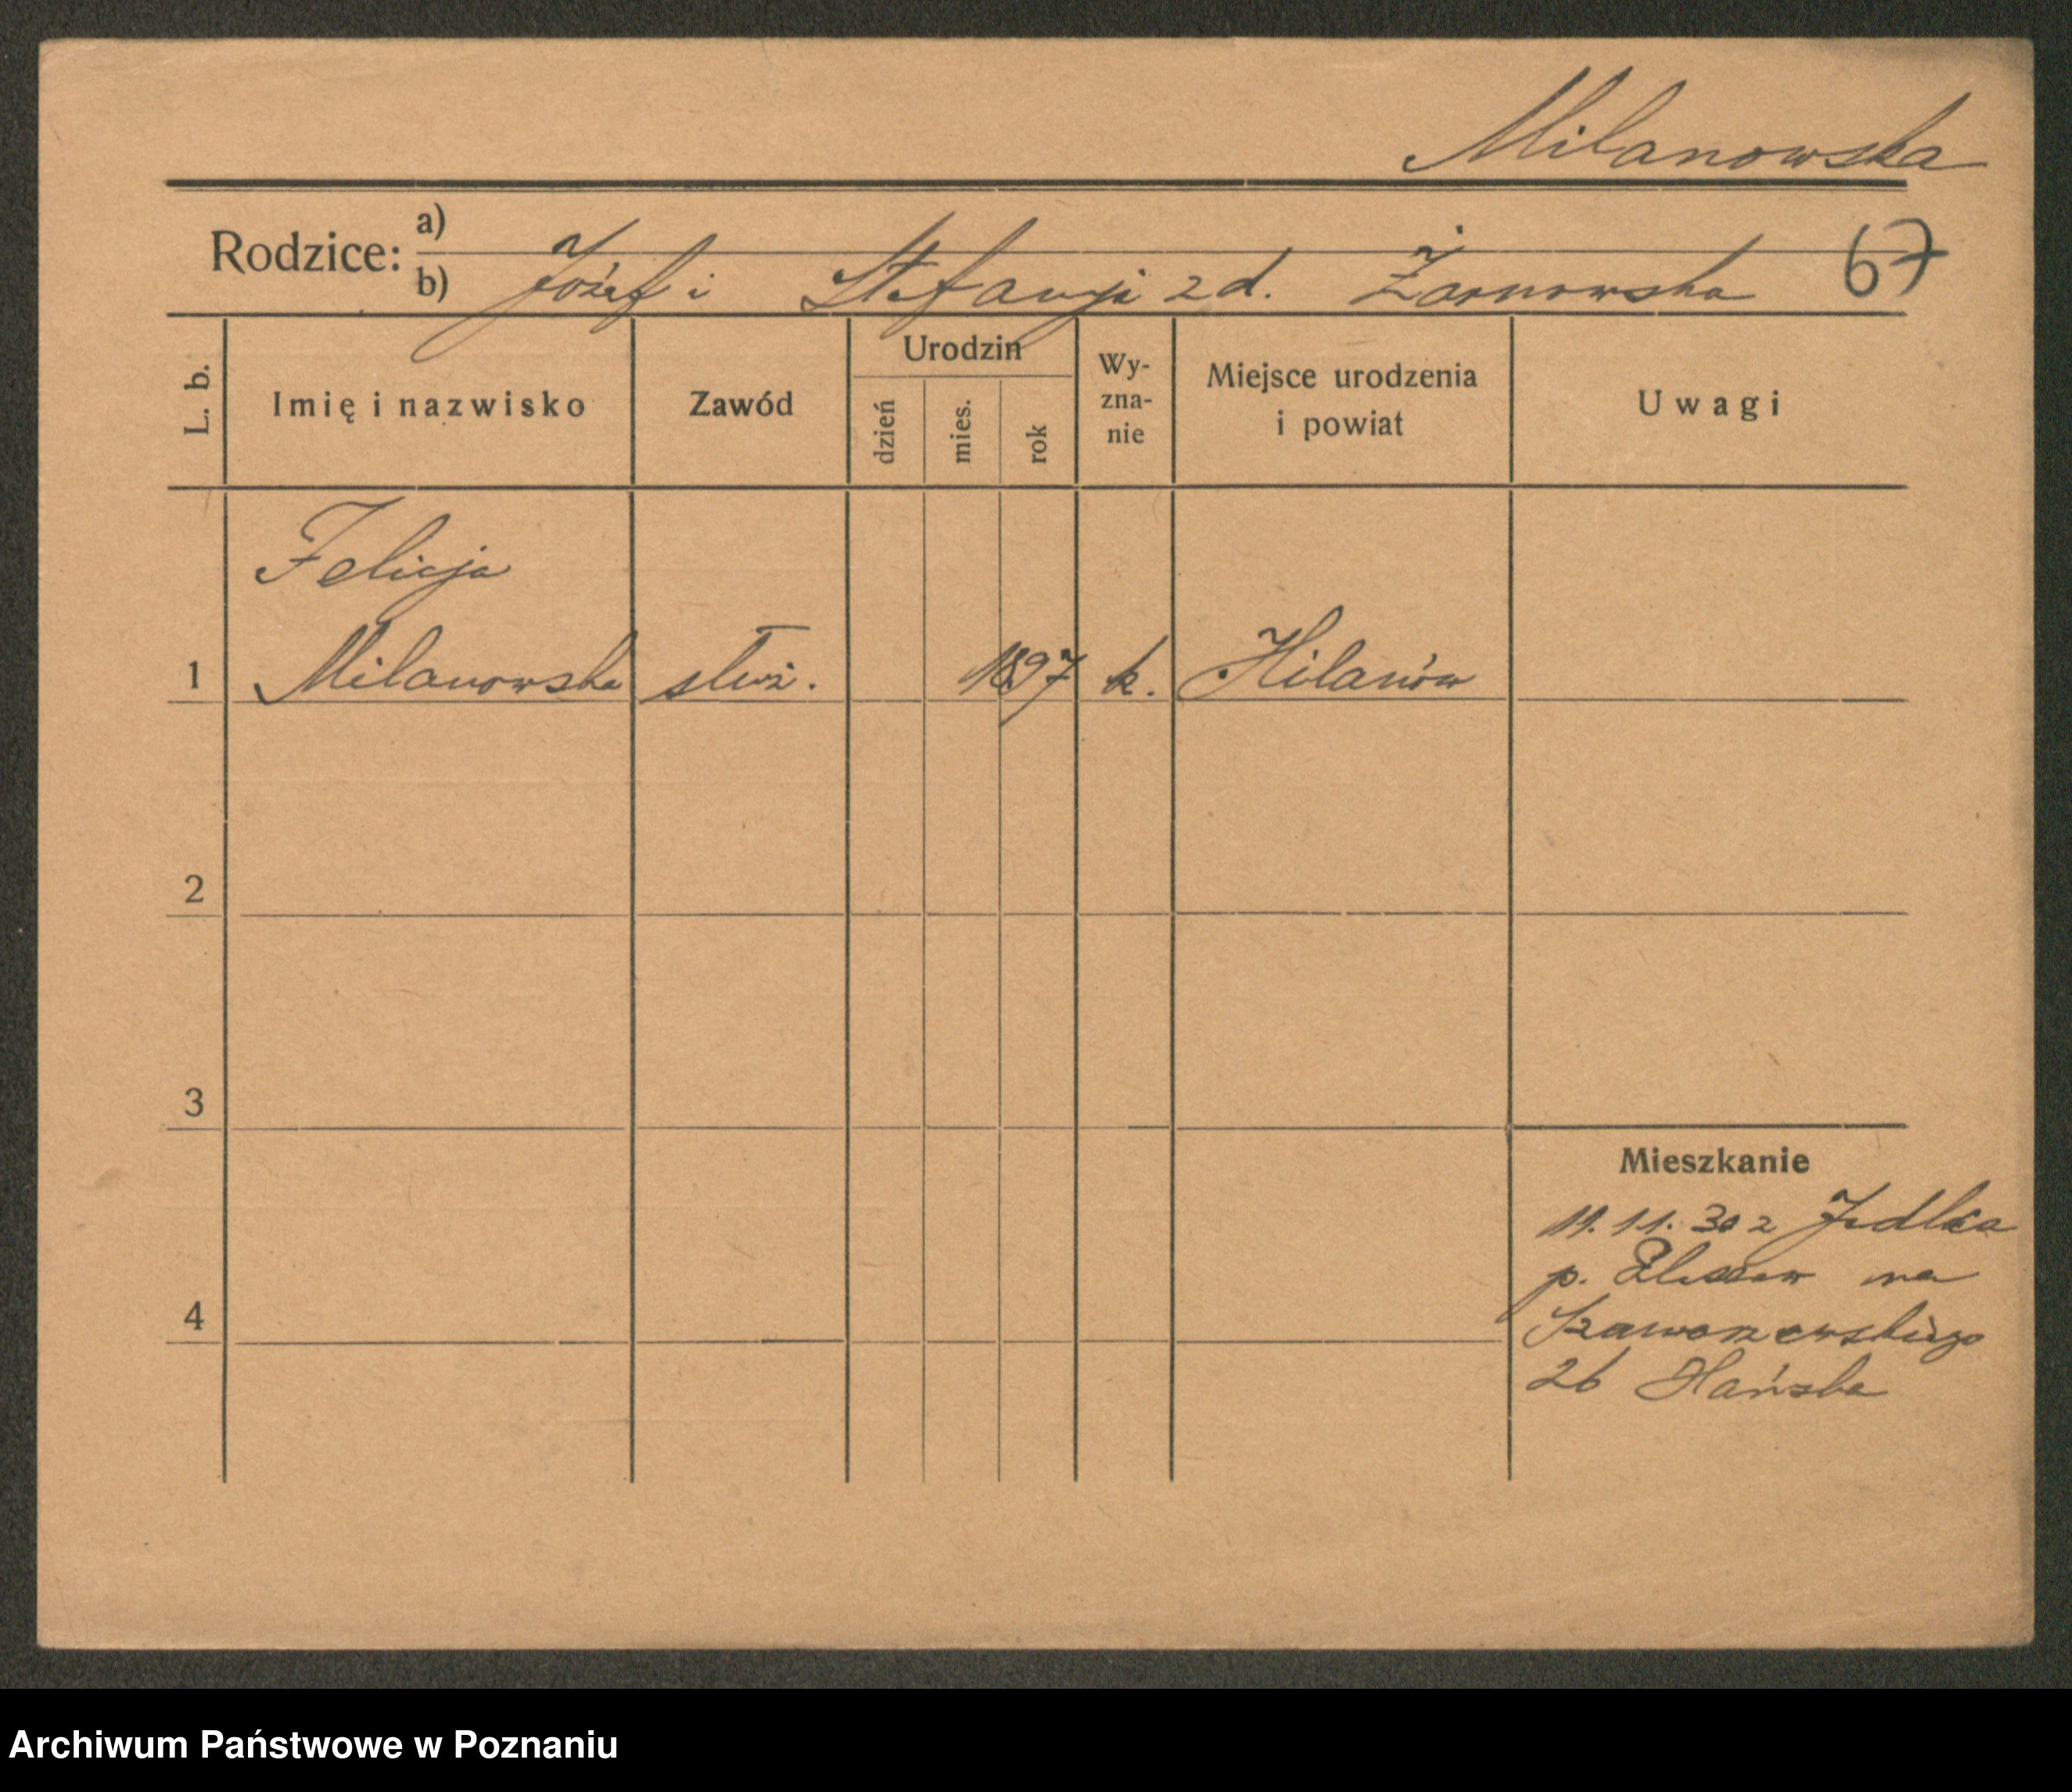 Milanowska
Rodzice: a)
b) Józef i Stefanji z d. Żarnowska 67
L. b. Imię i nazwisko Zawód Urodzin dzień mies. rok Wy-zna-nie Miejsce urodzenia i powiat Uwagi
Felicja
1 Milanowska służ. 1897 k. Hilarów
2
3
Mieszkanie
11. 11. 30 z Jedlca
p. na
4
26
Archiwum Państwowe w Poznaniu